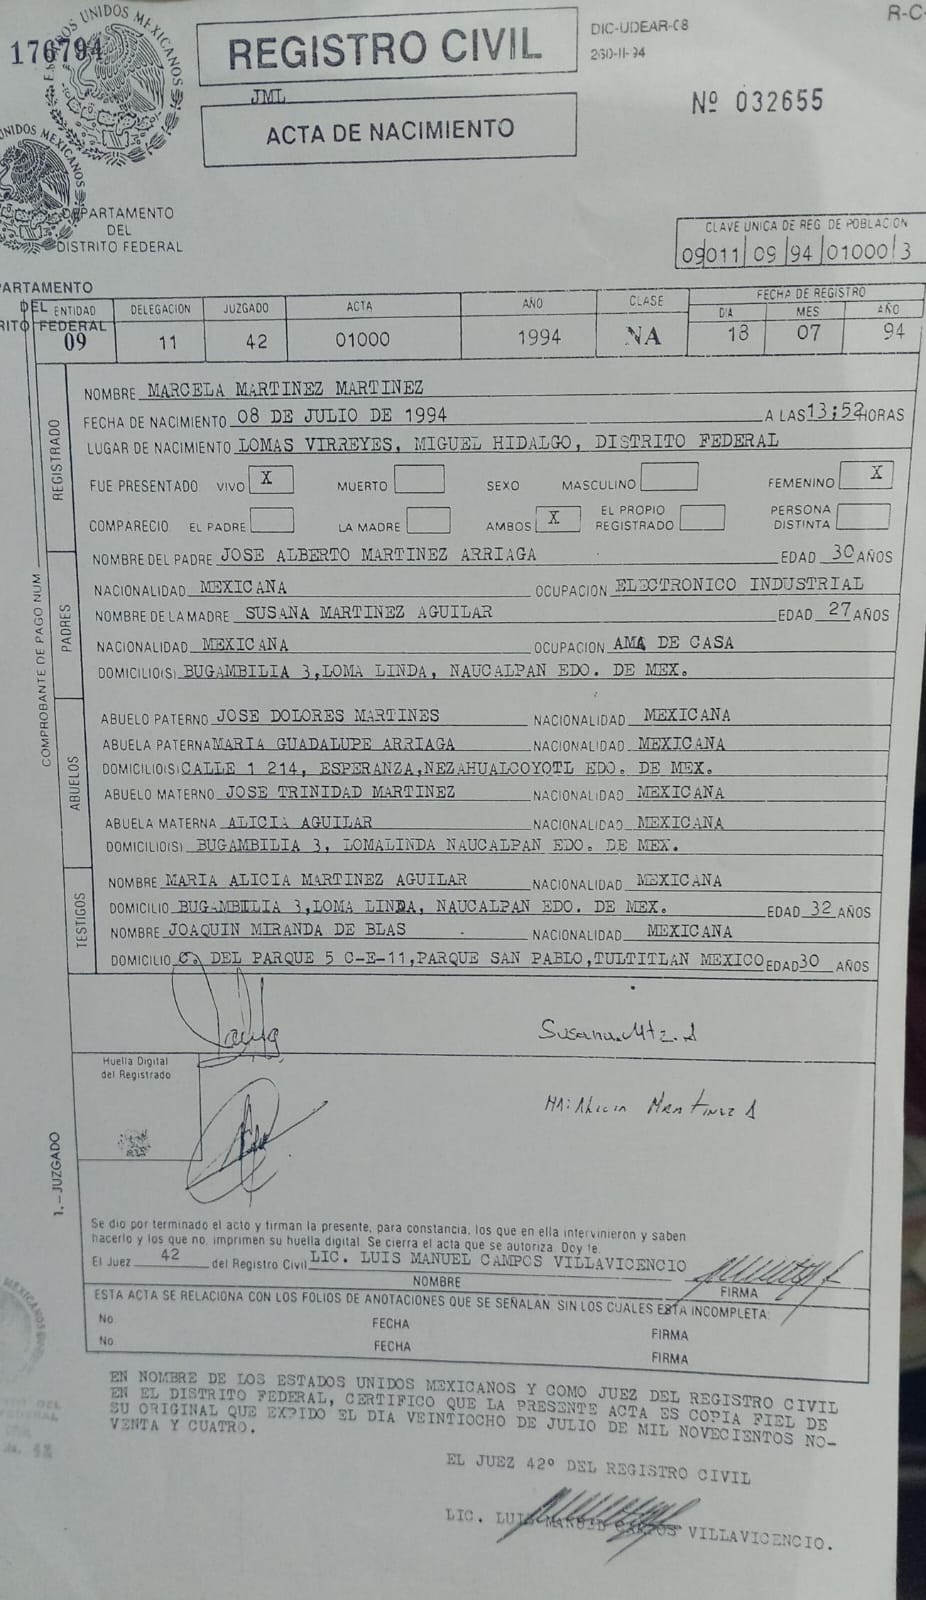 176794
ESTADOS UNIDOS MEXICANOS
UNIDOS MEXICANOS
REGISTRO CIVIL
JML
ACTA DE NACIMIENTO
DIC-UDEAR-08
260-II-94
R-C-
Nº 032655
DEPARTAMENTO
DEL
DISTRITO FEDERAL
CLAVE UNICA DE REG. DE POBLACION
09 011 09 94 01000 3
PARTAMENTO
DEL
RITO FEDERAL
ENTIDAD DELEGACION JUZGADO ACTA AÑO CLASE FECHA DE REGISTRO
DIA MES AÑO
09 11 42 01000 1994 NA 18 07 94
REGISTRADO
NOMBRE MARCELA MARTINEZ MARTINEZ
FECHA DE NACIMIENTO 08 DE JULIO DE 1994 A LAS 13;52 HORAS
LUGAR DE NACIMIENTO LOMAS VIRREYES, MIGUEL HIDALGO, DISTRITO FEDERAL
FUE PRESENTADO VIVO X MUERTO SEXO MASCULINO FEMENINO X
COMPARECIO EL PADRE LA MADRE AMBOS X EL PROPIO REGISTRADO PERSONA DISTINTA
PADRES
NOMBRE DEL PADRE JOSE ALBERTO MARTINEZ ARRIAGA EDAD 30 AÑOS
NACIONALIDAD MEXICANA OCUPACION ELECTRONICO INDUSTRIAL
NOMBRE DE LA MADRE SUSANA MARTINEZ AGUILAR EDAD 27 AÑOS
NACIONALIDAD MEXICANA OCUPACION AMA DE CASA
DOMICILIO(S) BUGAMBILIA 3,LOMA LINDA, NAUCALPAN EDO. DE MEX.
ABUELOS
ABUELO PATERNO JOSE DOLORES MARTINES NACIONALIDAD MEXICANA
ABUELA PATERNA MARIA GUADALUPE ARRIAGA NACIONALIDAD MEXICANA
DOMICILIO(S) CALLE 1 214, ESPERANZA,NEZAHUALCOYOTL EDO. DE MEX.
ABUELO MATERNO JOSE TRINIDAD MARTINEZ NACIONALIDAD MEXICANA
ABUELA MATERNA ALICIA AGUILAR NACIONALIDAD MEXICANA
DOMICILIO(S) BUGAMBILIA 3, LOMALINDA NAUCALPAN EDO. DE MEX.
TESTIGOS
NOMBRE MARIA ALICIA MARTINEZ AGUILAR NACIONALIDAD MEXICANA
DOMICILIO BUGAMBILIA 3,LOMA LINDA, NAUCALPAN EDO. DE MEX. EDAD 32 AÑOS
NOMBRE JOAQUIN MIRANDA DE BLAS NACIONALIDAD MEXICANA
DOMICILIO C. DEL PARQUE 5 C-E-11,PARQUE SAN PABLO,TULTITLAN MEXICO EDAD 30 AÑOS
COMPROBANTE DE PAGO NUM
Susana Mtz. A
Huella Digital
del Registrado
Ma: Alicia Martinez A
1.-JUZGADO
Se dio por terminado el acto y firman la presente, para constancia, los que en ella intervinieron y saben
hacerlo y los que no, imprimen su huella digital. Se cierra el acta que se autoriza. Doy fe.
El Juez 42 del Registro Civil LIC. LUIS MANUEL CAMPOS VILLAVICENCIO
NOMBRE FIRMA
ESTA ACTA SE RELACIONA CON LOS FOLIOS DE ANOTACIONES QUE SE SEÑALAN, SIN LOS CUALES ESTA INCOMPLETA:
No. FECHA FIRMA
No. FECHA FIRMA
EN NOMBRE DE LOS ESTADOS UNIDOS MEXICANOS Y COMO JUEZ DEL REGISTRO CIVIL
EN EL DISTRITO FEDERAL, CERTIFICO QUE LA PRESENTE ACTA ES COPIA FIEL DE
SU ORIGINAL QUE EXPIDO EL DIA VEINTIOCHO DE JULIO DE MIL NOVECIENTOS NO-
VENTA Y CUATRO.
EL JUEZ 42º DEL REGISTRO CIVIL
LIC. LUIS MANUEL CAMPOS VILLAVICENCIO.